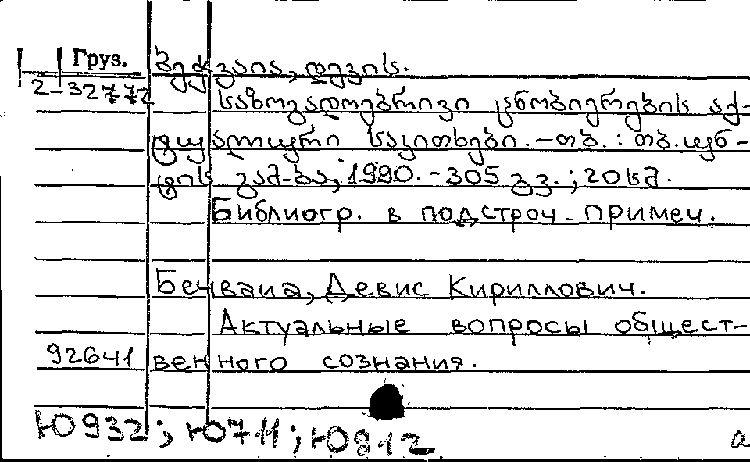 Груз.
2-32772
ბეჭვაია, დევის.
საზოგადოებრივი ცნობიერების აქ-
ტუალური საკითხები. - თბ. : თბ. უნ-
ტის გამ-ბა, 1990. - 305 გვ. ; 20 სმ.
Библиогр. в подстроч. примеч.
Бечваиа, Девис Кириллович.
Актуальные вопросы общест-
92641 венного сознания.
Ю932; Ю711; Ю812
а